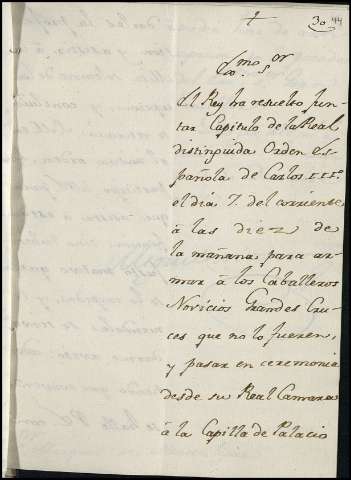 †
30 44
Exmo. Sor.
El Rey ha resuelto jun-
tar Capitulo de la Real
distinguida Orden Es-
pañola de Carlos III.º
el dia 7. del corriente
á las diez de
la mañana para ar-
mar á los Caballeros
Novicios Grandes Cru-
ces que no lo fueren,
y pasar en ceremonia
desde su Real Camara
á la Capilla de Palacio